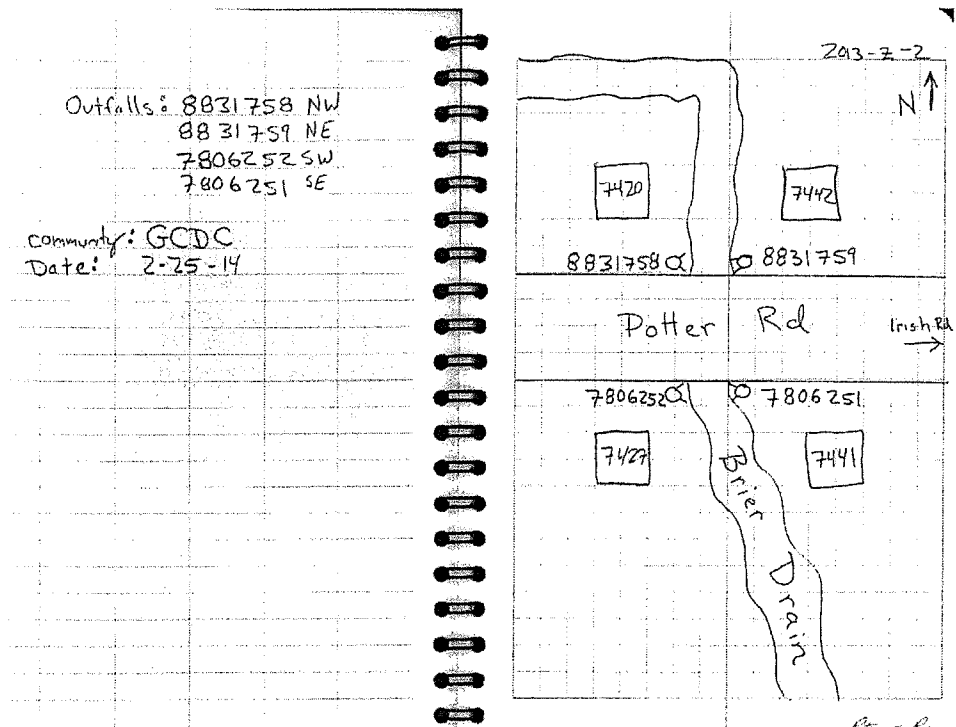 Outfalls: 8831758 NW
8831759 NE
7806252 SW
7806251 SE
community: GCDC
Date: 2-25-14
2013-Z-2
N
7420
7442
8831758
8831759
Potter Rd
Irish Rd
7806252
7806251
7427
7441
Brier Drain